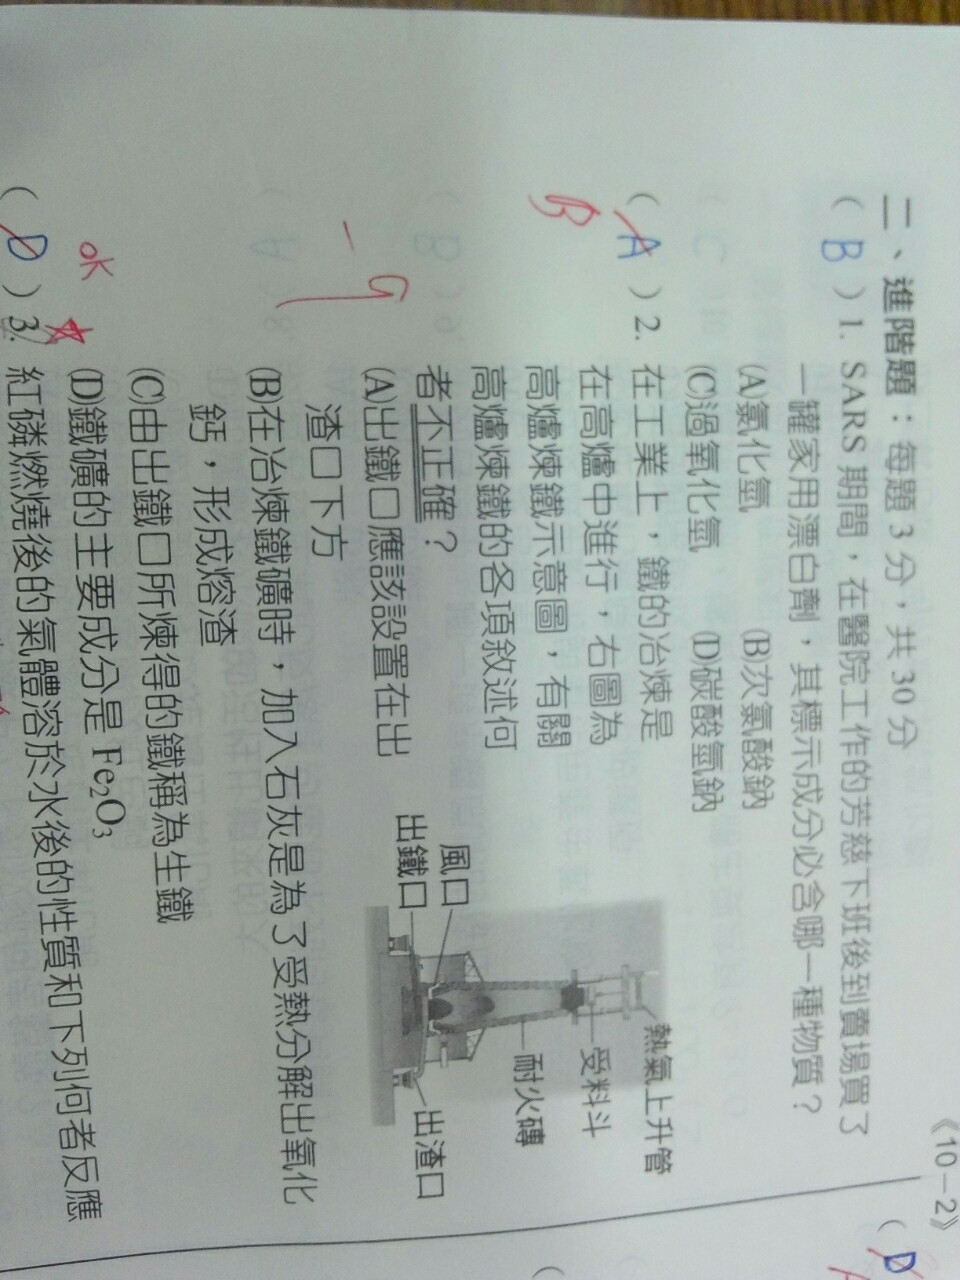 《10－2》
二、進階題：每題 3 分，共 30 分
( B ) 1. SARS 期間，在醫院工作的芳慈下班後到賣場買了
一罐家用漂白劑，其標示成分必含哪一種物質？
(A)氯化氫 (B)次氯酸鈉
(C)過氧化氫 (D)碳酸氫鈉
( A ) 2. 在工業上，鐵的冶煉是
B
在高爐中進行，右圖為
高爐煉鐵示意圖，有關
高爐煉鐵的各項敘述何
者不正確？
熱氣上升管
受料斗
耐火磚
風口
出鐵口
出渣口
(A)出鐵口應該設置在出
渣口下方
－9
(B)在冶煉鐵礦時，加入石灰是為了受熱分解出氧化
鈣，形成熔渣
(C)由出鐵口所煉得的鐵稱為生鐵
(D)鐵礦的主要成分是 Fe₂O₃
OK
( D ) 3. 紅磷燃燒後的氣體溶於水後的性質和下列何者反應
( D